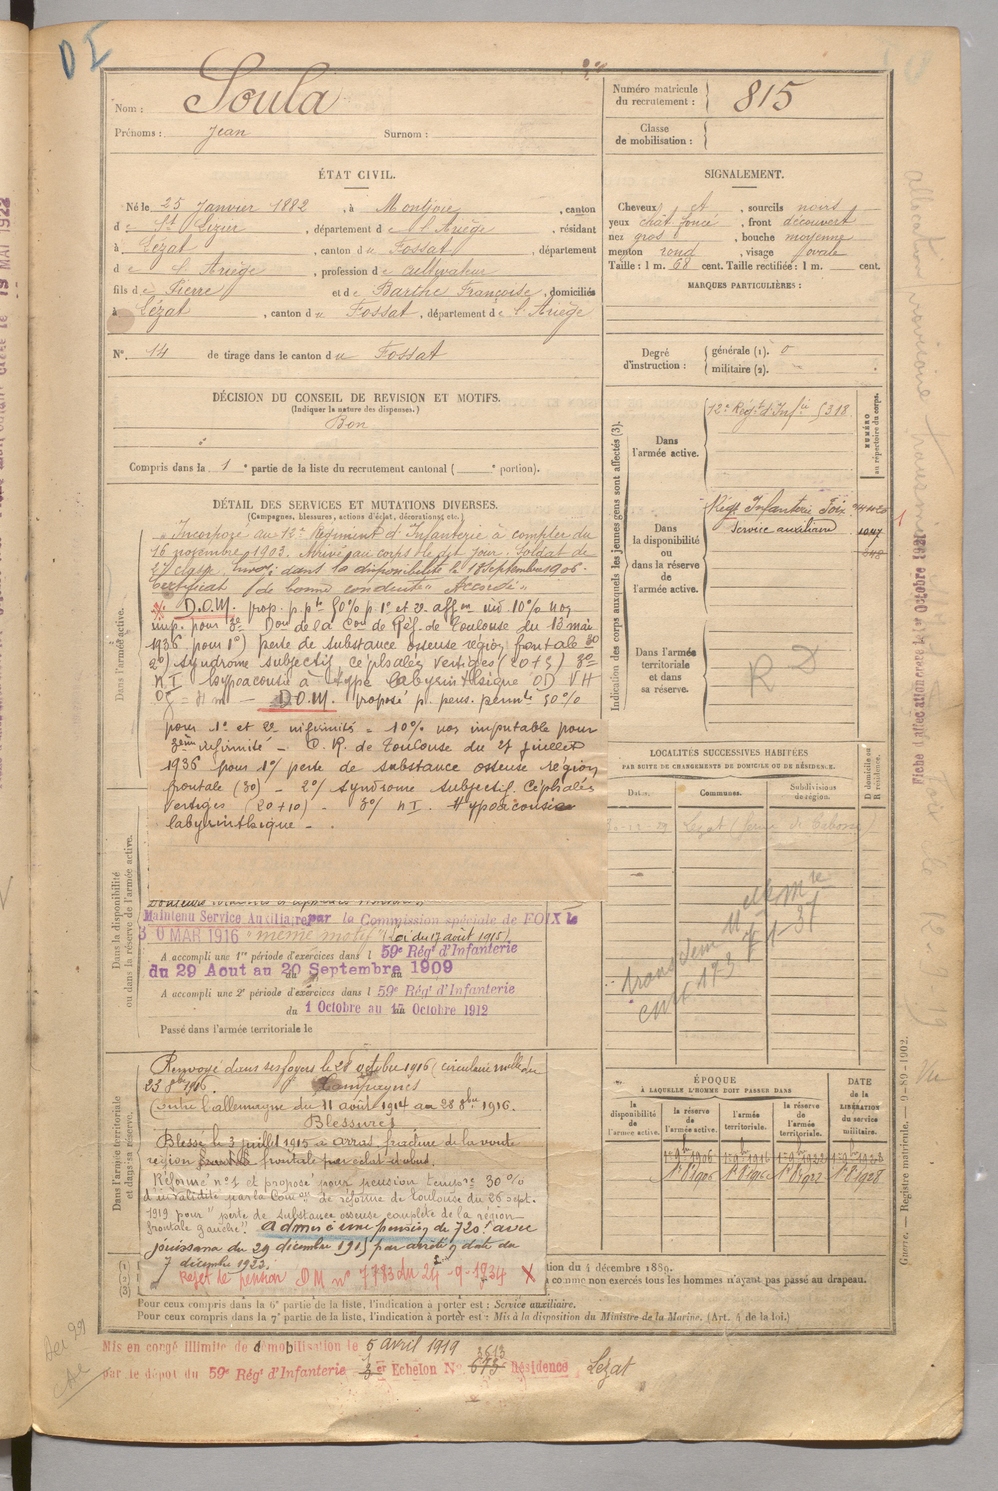 D I
Nom : Soula
Prénoms : Jean Surnom :
Numéro matricule
du recrutement : 815
Classe
de mobilisation :
ÉTAT CIVIL.
Né le 25 Janvier 1882, à Montjoie, canton
de St Lizier, département de l'Ariège, résidant
à Lézat, canton du Fossat, département
de l'Ariège, profession de cultivateur
fils de Pierre et de Barthe Françoise, domiciliés
à Lézat, canton du Fossat, département de l'Ariège
N°. 14 de tirage dans le canton du Fossat
SIGNALEMENT.
Cheveux et, sourcils noirs
yeux chat. foncé, front découvert
nez gros, bouche moyenne
menton rond, visage ovale
Taille : 1 m. 68 cent. Taille rectifiée : 1 m. cent.
MARQUES PARTICULIÈRES :
Degré
d'instruction :
générale (1). 0
militaire (2).
DÉCISION DU CONSEIL DE REVISION ET MOTIFS.
(Indiquer la nature des dispenses.)
Bon
Compris dans la 1e partie de la liste du recrutement cantonal ( e portion).
DÉTAIL DES SERVICES ET MUTATIONS DIVERSES.
(Campagnes, blessures, actions d'éclat, décorations, etc.)
Dans l'armée active.
Incorporé au 12e Régiment d'Infanterie à compter du
16 novembre 1903. Arrivé au corps le dit jour. Soldat de
2e classe. Envoyé dans la disponibilité le 18 Septembre 1906.
Certificat de bonne conduite "Accordé"
D.O.M. prop. p. pte 50% p. 1° et 2° aff on ind 10% non
imp. pour 3e Don de la Con de Réf. de Toulouse du 13 mai
1936 pour 1°) perte de substance osseuse région frontale 30
2°) syndrome subjectif, céphalées vertiges (20+5) 3°
N I hypoacousie à type labyrinthique OD VH
D.O.M. proposé p. pens. permte 50%
pour 1° et 2° infirmités - 10% non imputable pour
3ème infirmité - C. R. de Toulouse du 27 juillet
1936 pour 1°/ perte de substance osseuse région
frontale (30) - 2°/ syndrome subjectif. Céphalées
vertiges (20+10) - 3°/ N I. Hypoacousie
labyrinthique -
Dans la disponibilité
ou dans la réserve de l'armée active.
Maintenu Service Auxiliaire par la Commission spéciale de FOIX le
30 MAR 1916 "même motif" (Loi du 17 août 1915)
A accompli une 1e période d'exercices dans l 59e Régt d'Infanterie
du 29 Aout au 20 Septembre 1909
A accompli une 2e période d'exercices dans l 59e Régt d'Infanterie
du 1 Octobre au 17 Octobre 1912
Passé dans l'armée territoriale le
Dans l'armée territoriale
et dans sa réserve.
Renvoyé dans ses foyers le 28 octobre 1916 (circulaire mlle du
23 8bre 1916.
Campagnes
Contre l'allemagne du 11 août 1914 au 28 8bre 1916.
Blessures
Blessé le 3 juillet 1915 à arras, fracture de la voute
région frontale par éclat d'obus.
Réformé n° 1 et proposé pour pension tempre 30%
d'invalidité par la Comon de réforme de Toulouse du 26 sept.
1919 pour "perte de substance osseuse complète de la région
frontale gauche". Admis à une pension de 720f avec
jouissance du 29 décembre 1915 par arrêté en date du
7 décembre 1923.
Rejet de pension DM n° 7783 du 24-9-1934 X
Indication des corps auxquels les jeunes gens sont affectés (3).
Dans
l'armée active.
12e Régt d'Infie 5318
NUMÉRO
au répertoire du corps.
Dans
la disponibilité
ou
dans la réserve
de
l'armée active.
Régt Infanterie Foix
Service auxiliaire 1047
Dans l'armée
territoriale
et dans
sa réserve.
LOCALITÉS SUCCESSIVES HABITÉES
PAR SUITE DE CHANGEMENTS DE DOMICILE OU DE RÉSIDENCE.
Dates. Communes. Subdivisions
de région.
D domicile ou
R résidence.
ÉPOQUE
À LAQUELLE L'HOMME DOIT PASSER DANS
la
disponibilité
de
l'armée active.
la réserve
de
l'armée active.
l'armée
territoriale.
la réserve
de
l'armée
territoriale.
DATE
de la
LIBÉRATION
du service
militaire.
1er 9bre 1906 1er 9bre 1916 1er 9bre 1922 1er 9bre 1928
1er 8bre 1906 1er 8bre 1916 1er 8bre 1922 1er 8bre 1928
(1)
(2)
(3)
tion du 4 décembre 1889.
a comme non exercés tous les hommes n'ayant pas passé au drapeau.
Pour ceux compris dans la 6e partie de la liste, l'indication à porter est : Service auxiliaire.
Pour ceux compris dans la 7e partie de la liste, l'indication à porter est : Mis à la disposition du Ministre de la Marine. (Art. 4 de la loi.)
Mis en congé illimité de démobilisation le 5 avril 1919
3613
par le dépôt du 59e Régt d'Infanterie 3er Echelon N° 673 Résidence Lézat
Guerre. — Registre matricule. — 9-89-1902.